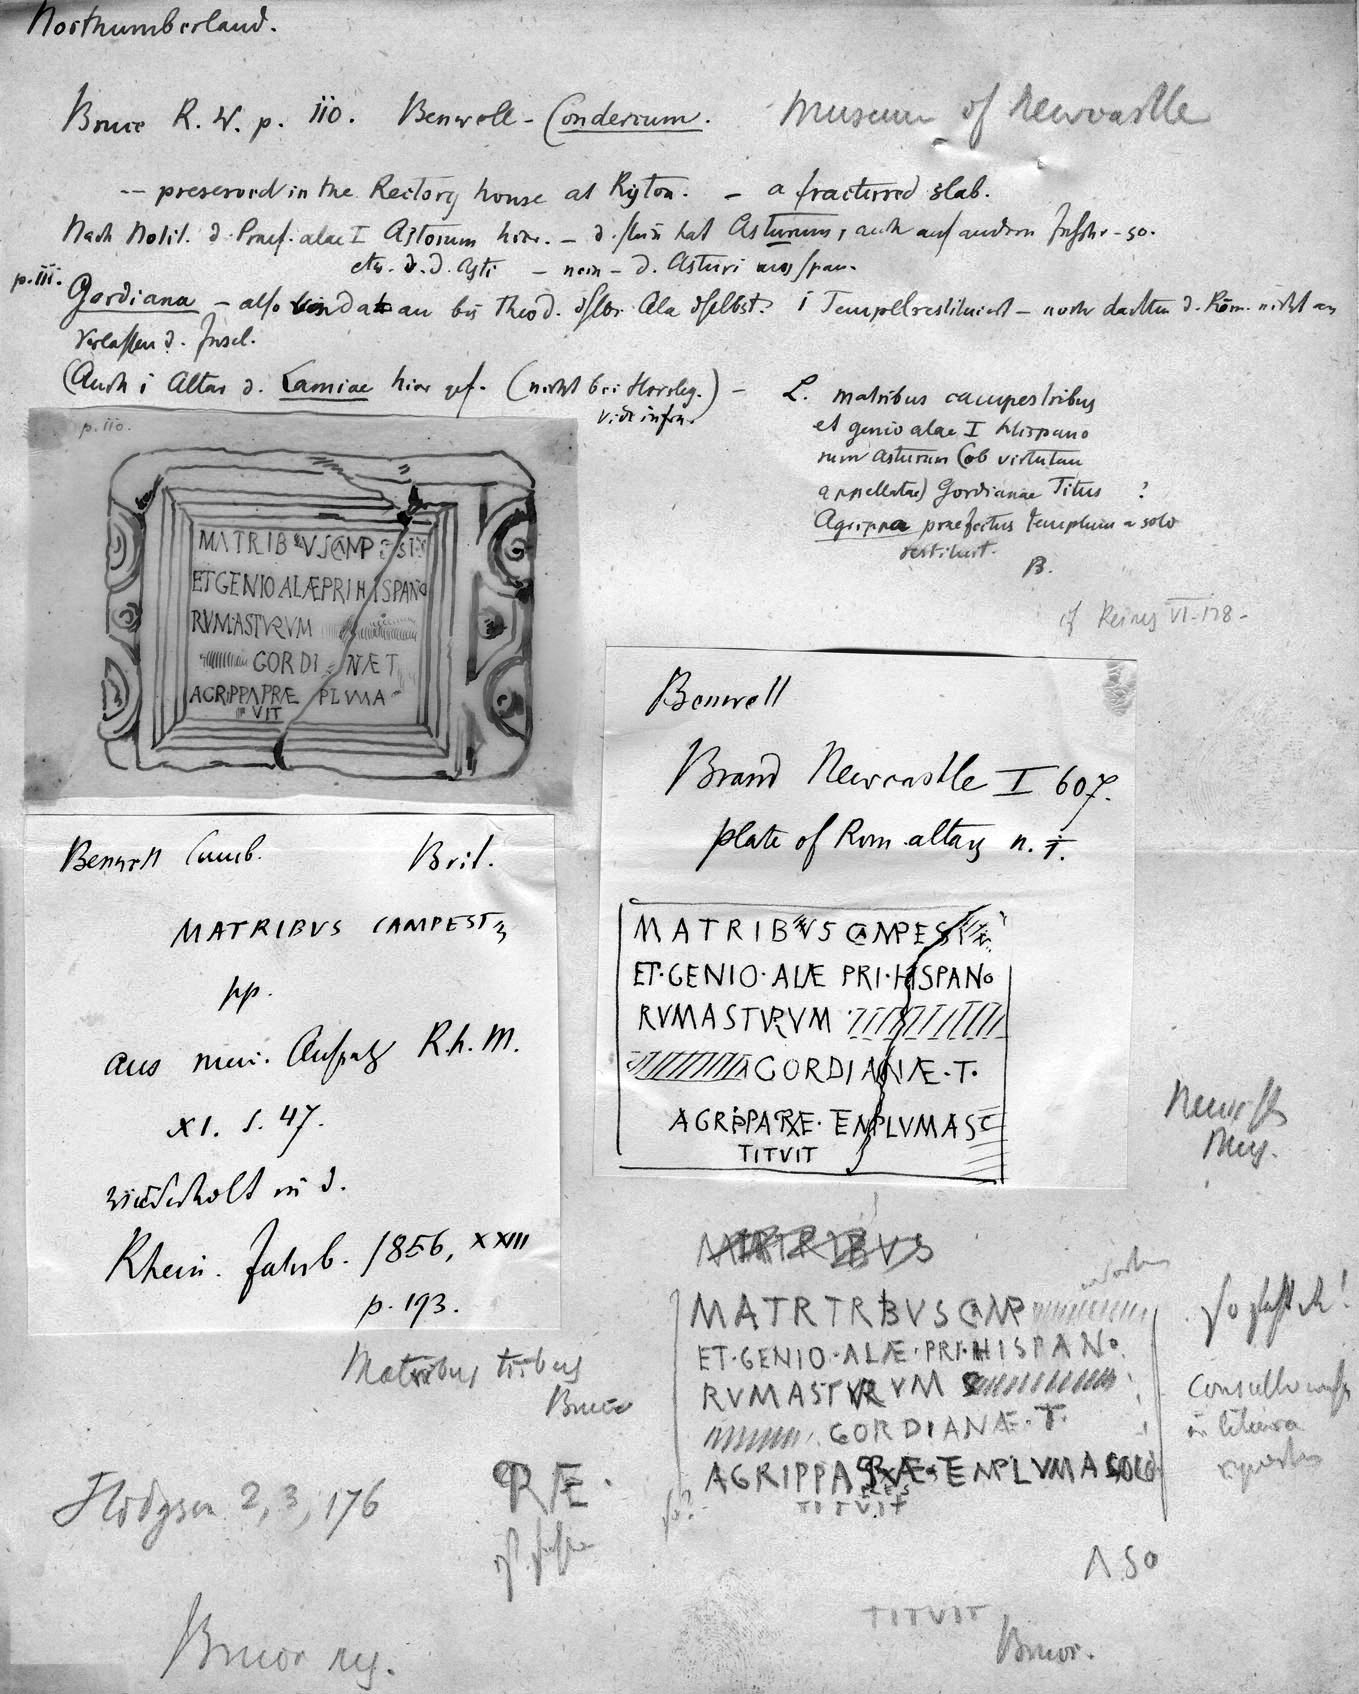 Northumberland.
Bruce R. W. p. 110. Benwell - Condercum. Museum of Newcastle
-- preserved in the Rectory house at Ryton. - a fractured slab.
Nach Notit. d. Praef. alae I Astorum hier. - d. Stein hat Asturum, auch auf andern Inschr. - so.
etw. d. d. Asti - nein - d. Asturi aus Span.
p. 111. Gordiana - also von da an bis Theod. dslbe Ala dselbst. 1 Tempel restituiert - noch dachten d. Röm. nicht an
Verlassen d. Insel.
(Auch 1 Altar d. Lamiae hier gef. (nicht bei Horsley.) -
vide infra.
L. matribus campestribus
et genio alae I Hispano
rum Asturum (ob virtutem
appellatae) Gordianae Titus ?
Agrippa praefectus templum a solo
restituit.
B.
cf Reines VI-178-
p. 110.
MATRIBVS CAMPEST
ET GENIO ALÆ PRI HISPANO
RVM ASTVRVM
GORDI NÆ T
AGRIPPA PRÆ PLVMA
VIT
Benwell
Brand Newcastle I 607.
plate of Rom altars n. 7.
MATRIBVS CAMPEST
ET·GENIO·ALÆ PRI·HISPANO
RVMASTVRVM
GORDIANÆ·T·
AGRIPPA PRÆ· TEMPLVM A S
TITVIT
Benwell Cumb. Brit.
MATRIBVS CAMPESTR
pp.
aus mei. Aufsatz Rh. M.
XI. S. 47.
wiederholt in d.
Rhein. Jahrb. 1856, XXIII
p. 193.
Matribus tribus
Bruce
Newcastle
Mus.
MATRIBVS
MATRTRBVS CAMP
ET·GENIO·ALÆ·PRI·HISPANO
RVMASTVRVM S
GORDIANÆ·T·
AGRIPPA PRÆ·TEMPLVM A SOLO
RES
TITVIT
so?
Hodgson 2, 3, 176
PRÆ·
A SO
TITVIT
Bruce.
Bruce